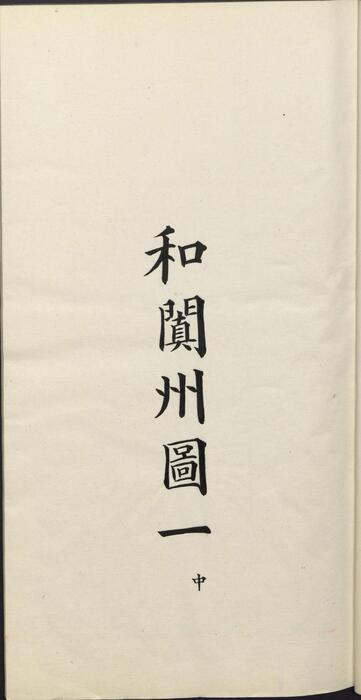 和闐州圖一
中